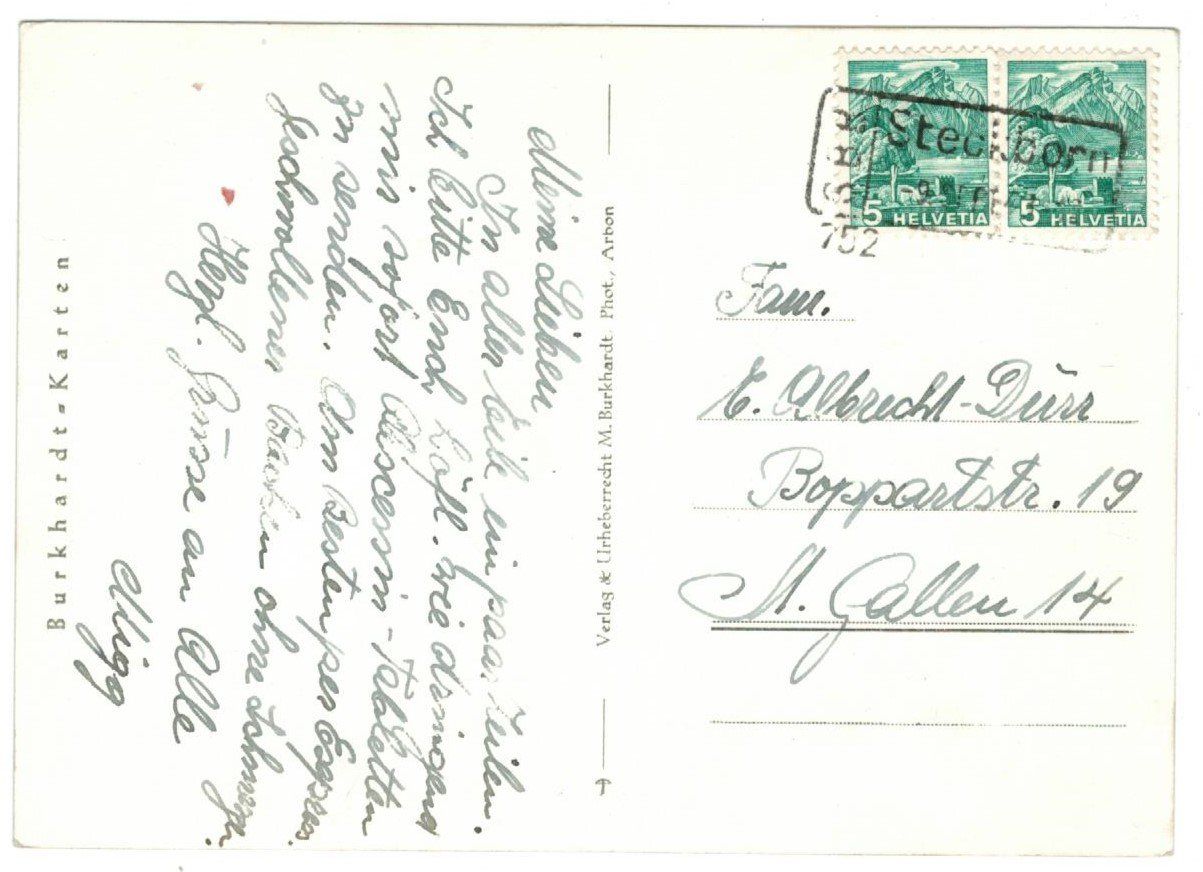 Burkhardt-Karten
Meine Lieben
In aller Eile ein paar Zeilen.
Ich bitte Euch höfl. wie dringend
mir sofort Abscessin-Tabletten
zu senden. Am besten per Express.
Geschwollener Backen ohne Schmerzen.
Herzl. Grüsse an Alle
Migg
Verlag & Urheberrecht M. Burkhardt. Phot., Arbon
5 HELVETIA
5 HELVETIA
SBB
Steckborn
752
Fam.
E. Albrecht-Dürr
Boppartstr. 19
St. Gallen 14